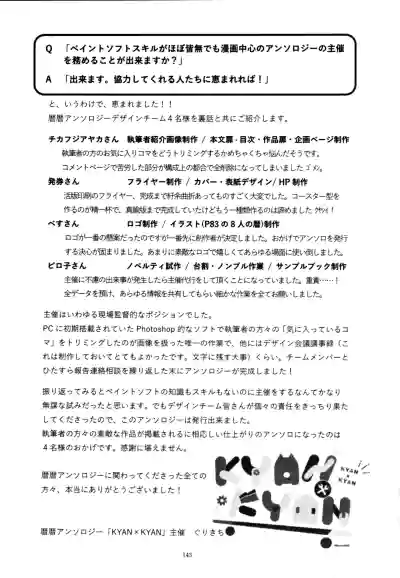 Q 「ペイントソフトスキルがほぼ皆無でも漫画中心のアンソロジーの主催
を務めることが出来ますか？」
A 「出来ます。協力してくれる人たちに恵まれれば！」
と、いうわけで、恵まれました！！
暦暦アンソロジーデザインチーム４名様を裏話と共にご紹介します。
チカフジアヤカさん 執筆者紹介画像制作 / 本文扉・目次・作品扉・企画ページ制作
執筆者の方のお気に入りコマをどうトリミングするかめちゃくちゃ悩んだそうです。
コメントページで苦労した部分が構成上の都合で全削除になってしまいました ゴメン。
発券さん フライヤー制作 / カバー・表紙デザイン / HP 制作
活版印刷のフライヤー、完成まで紆余曲折あってものすごく大変でした。コースター型を
作るのが精一杯で、真鍮版まで完成していたけどもう一種類作るのは諦めました
べすさん ロゴ制作 / イラスト(P83 の 8 人の暦)制作
ロゴが一番の懸案だったのですが一番先に創作者が決定しました。おかげでアンソロを発行
する決心が固まりました。あまりに素敵なロゴで嬉しくてあらゆる場面に使い倒しました。
ピロ子さん ノベルティ試作 / 台割・ノンブル作業 / サンプルブック制作
主催に不慮の出来事が発生したら主催代行をして頂くことになっていました。重責……！
全データを預け、あらゆる情報を共有してもらい細かな作業を全てお願いしました。
主催はいわゆる現場監督的なポジションでした。
PC に初期搭載されていた Photoshop 的なソフトで執筆者の方々の「気に入っているコ
マ」をトリミングしたのが画像を扱った唯一の作業で、他にはデザイン会議議事録（こ
れは制作しておいてとてもよかったです。文字に残す大事）くらい。チームメンバーと
ひたすら報告連絡相談を繰り返した末にアンソロジーが完成しました！
振り返ってみるとペイントソフトの知識もスキルもないのに主催をするなんてかなり
無謀な試みだったと思います。でもデザインチーム皆さんが個々の責任をきっちり果た
してくださったので、このアンソロジーは発行出来ました。
執筆者の方々の素敵な作品が掲載されるに相応しい仕上がりのアンソロになったのは
４名様のおかげです。感謝に堪えません。
暦暦アンソロジーに関わってくださった全ての
方々、本当にありがとうございました！
KYAN
×
KYAN
KYAN
×
KYAN
暦暦アンソロジー「KYAN×KYAN」主催 ぐりきち
145